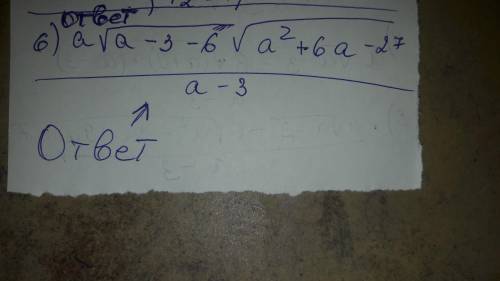 ответ
б) a√a - 3 - 6 √a² + 6a - 27
a - 3
Ответ